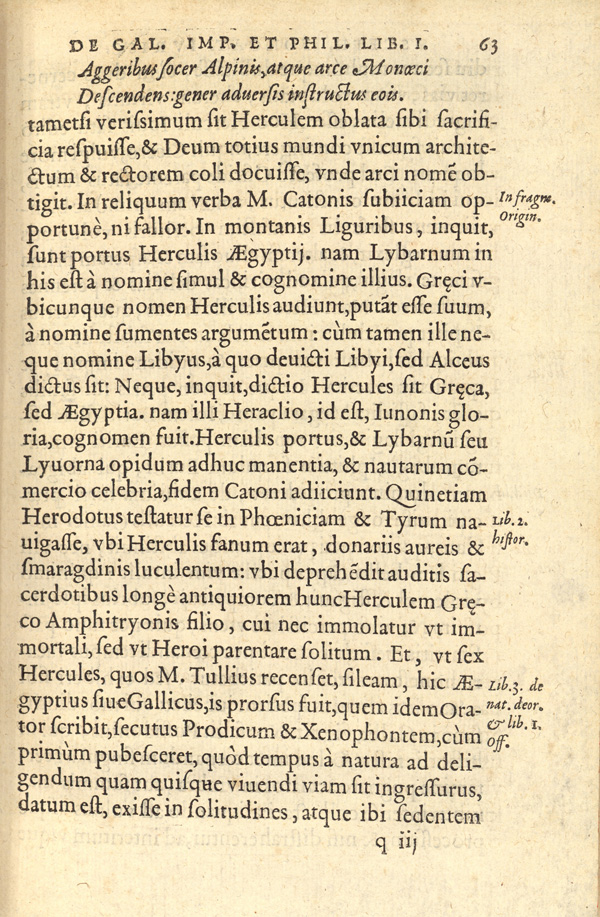 DE GAL. IMP. ET PHIL. LIB. I. 63
Aggeribus socer Alpinis, atque arce Monœci
Descendens: gener aduersis instructus eois.
tametsi verissimum sit Herculem oblata sibi sacrifi-
cia respuisse, & Deum totius mundi vnicum archite-
ctum & rectorem coli docuisse, vnde arci nomē ob-
tigit. In reliquum verba M. Catonis subiiciam op-
portunè, ni fallor. In montanis Liguribus, inquit,
In fragm.
Origin.
sunt portus Herculis Ægyptij. nam Lybarnum in
his est à nomine simul & cognomine illius. Gręci v-
bicunque nomen Herculis audiunt, putāt esse suum,
à nomine sumentes argumētum: cùm tamen ille ne-
que nomine Libyus, à quo deuicti Libyi, sed Alceus
dictus sit: Neque, inquit, dictio Hercules sit Gręca,
sed Ægyptia. nam illi Heraclio, id est, Iunonis glo-
ria, cognomen fuit. Herculis portus, & Lybarnū seu
Lyuorna opidum adhuc manentia, & nautarum cō-
mercio celebria, fidem Catoni adiiciunt. Quinetiam
Herodotus testatur se in Phœniciam & Tyrum na-
uigasse, vbi Herculis fanum erat, donariis aureis &
Lib. 2.
histor.
smaragdinis luculentum: vbi deprehēdit auditis sa-
cerdotibus longè antiquiorem hunc Herculem Grę-
co Amphitryonis filio, cui nec immolatur vt im-
mortali, sed vt Heroi parentare solitum. Et, vt sex
Hercules, quos M. Tullius recenset, sileam, hic Æ-
gyptius siue Gallicus, is prorsus fuit, quem idem Ora-
tor scribit, secutus Prodicum & Xenophontem, cùm
Lib. 3. de
nat. deor.
& lib. 1.
off.
primùm pubesceret, quòd tempus à natura ad deli-
gendum quam quisque viuendi viam sit ingressurus,
datum est, exisse in solitudines, atque ibi sedentem
q iij